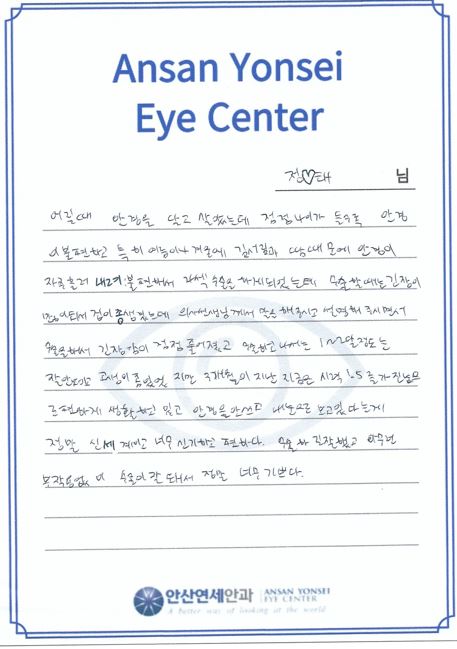 Ansan Yonsei
Eye Center
정♡태 님
어릴때 안경을 달고 살았는데 점점 나이가 들수록 안경
이 불편하고 특히 여름이나 겨울에 김서림과 땀 때문에 안경이
자꾸 흘러 내려 불편해서 라섹 수술을 하게되었는데 수술 할때는 긴장이
되서 겁이 좀 생겼는데 의사선생님께서 말을 해주시고 설명해 주시면서
수술을해서 긴장감이 점점 풀어졌고 수술하고 나서는 1~2달정도는
잘 안보이고 고생이 좀 있었지만 3개월이 지난 지금은 시력 1.5
편하게 생활하고 있고 안경을 안쓰고 내눈으로 보고있다는게
정말 신세계이고 너무 신기하고 편하다. 수술 하길 잘했고 아무런
부작용없이 수술이 잘 돼서 정말 너무 기쁘다.
안산연세안과 ANSAN YONSEI
EYE CENTER
A better way of looking at the world